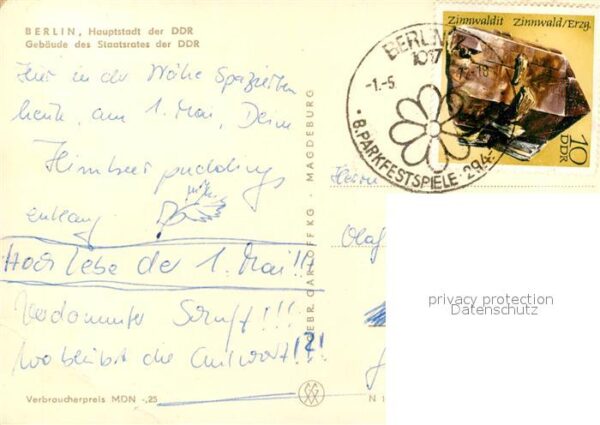 BERLIN, Hauptstadt der DDR
Gebäude des Staatsrates der DDR
Hier in der Nähe spazierten
heute, am 1. Mai, Deine
Himbeerpuddings
entlang.
Hoch lebe der 1. Mai!!!
Verdammter Schuft!!!
Wo bleibt die Antwort!?!
Verbraucherpreis MDN -,25
GEBR. GARLOFF KG · MAGDEBURG
BERLIN
1017
-1.-5.
8. PARKFESTSPIELE · 29.4.
Zinnwaldit Zinnwald/Erzg.
10
DDR
Herrn
Olaf
privacy protection
Datenschutz
N 1